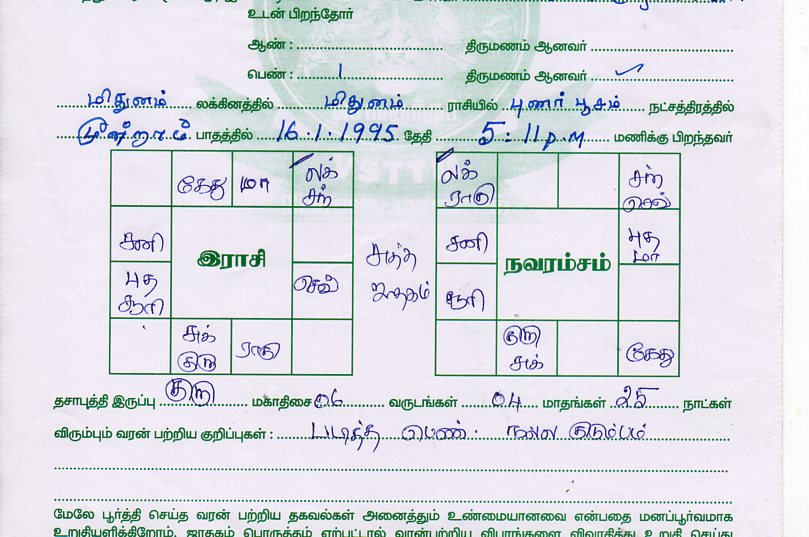 உடன் பிறந்தோர்
ஆண் : திருமணம் ஆனவர்
பெண் : 1 திருமணம் ஆனவர் ✓
மிதுனம் லக்கினத்தில் மிதுனம் ராசியில் புனர் பூசம் நட்சத்திரத்தில்
மூன்றாம் பாதத்தில் 16.1.1995 தேதி 5:11 p.m மணிக்கு பிறந்தவர்
கேது மா லக் சந் லக் ராகு சந் செவ்
சனி சனி புத மா
இராசி நவரம்சம்
புத சூரி செவ் சூரி
சுக் குரு ராகு குரு சுக் கேது
தசாபுத்தி இருப்பு குரு மகாதிசை 06 வருடங்கள் 04 மாதங்கள் 25 நாட்கள்
விரும்பும் வரன் பற்றிய குறிப்புகள் : படித்த பெண். நல்ல குடும்பம்
மேலே பூர்த்தி செய்த வரன் பற்றிய தகவல்கள் அனைத்தும் உண்மையானவை என்பதை மனப்பூர்வமாக
உறுதியளிக்கிறோம். ஜாதகம் பொருத்தம் ஏற்பட்டால் வரன்பற்றிய விபரங்களை விவாதித்து உறுதி செய்து